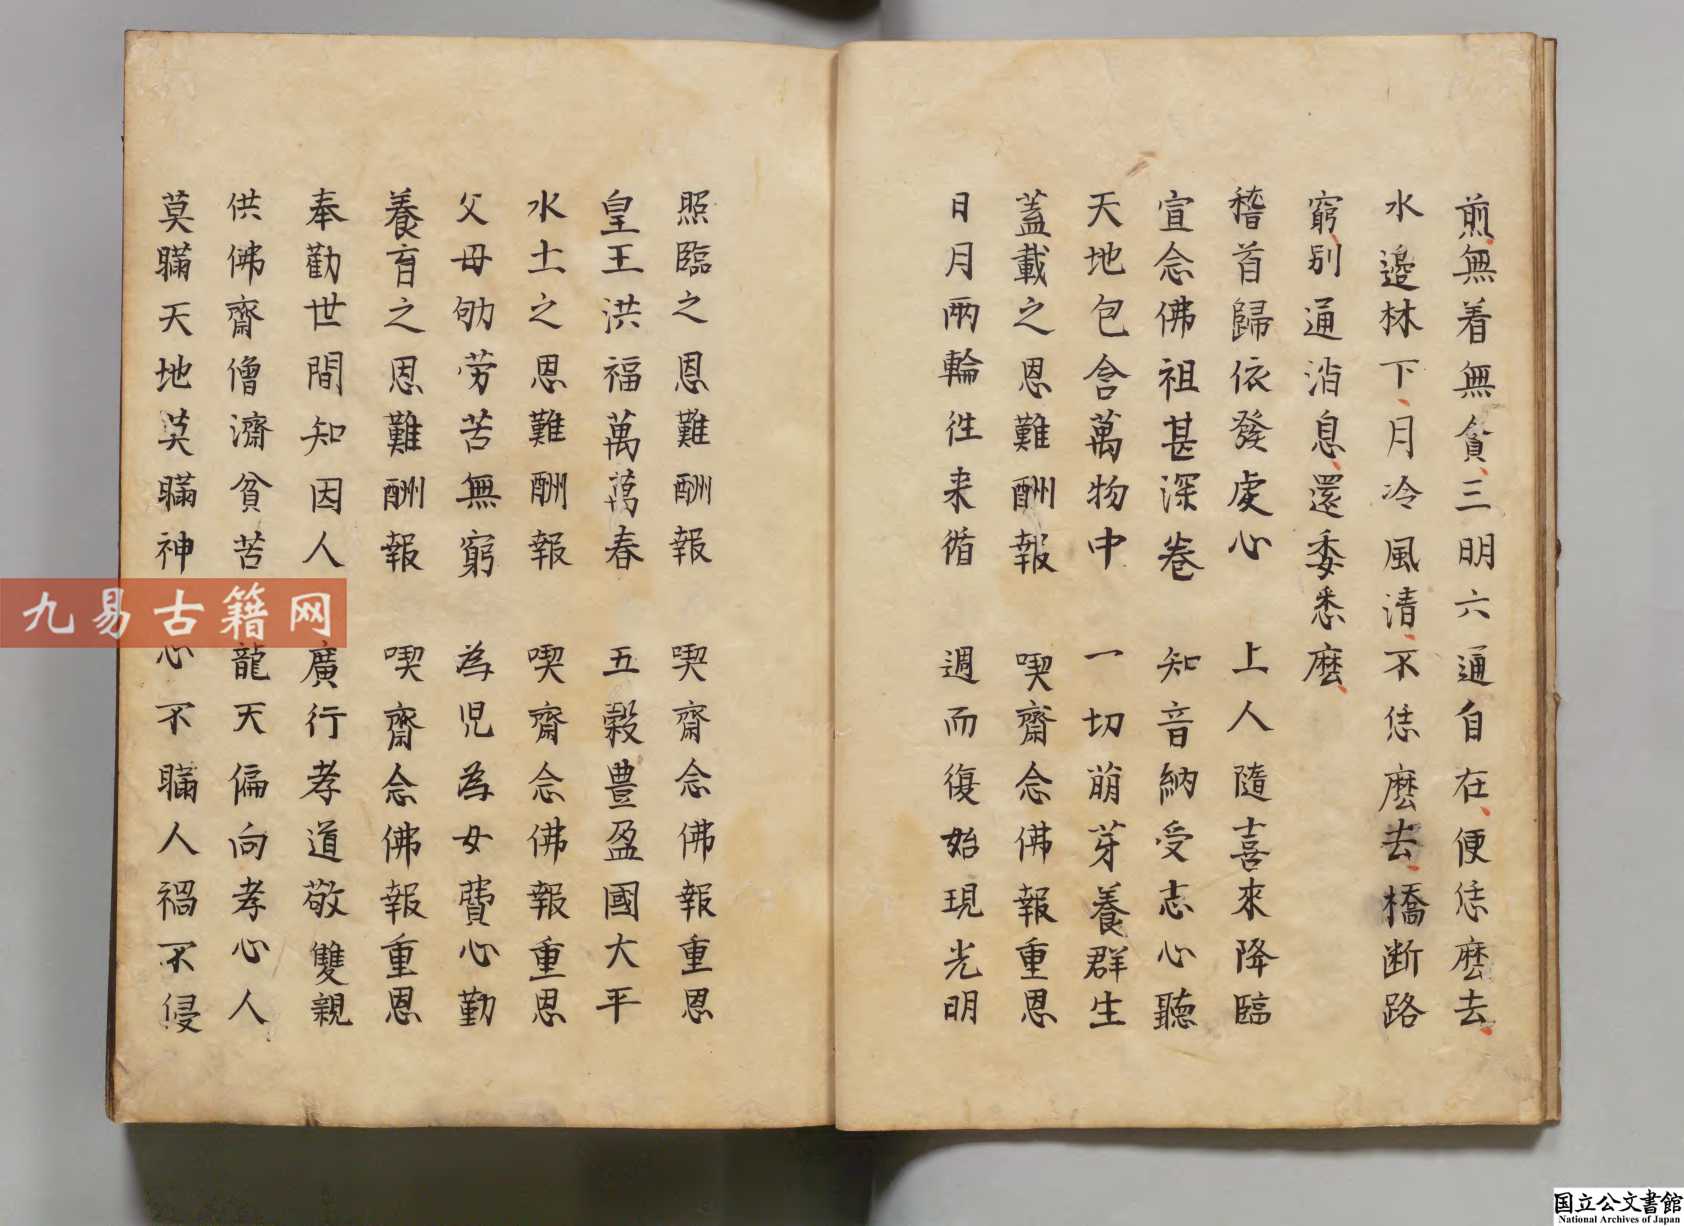 煎無着無貪三明六通自在便恁麽去
水邊林下月冷風清不恁麽去橋断路
窮别通消息還委悉麽
稽首歸依發處心 上人隨喜來降臨
宣念佛祖甚深卷 知音納受志心聽
天地包含萬物中 一切萠芽養群生
蓋載之恩難酬報 喫齋念佛報重恩
日月兩輪徃来循 週而復始現光明
照臨之恩難酬報 喫齋念佛報重恩
皇王洪福萬萬春 五穀豊盈國大平
水土之恩難酬報 喫齋念佛報重恩
父母劬劳苦無窮 為児為女費心勤
養育之恩難酬報 喫齋念佛報重恩
奉勸世間知因人 廣行孝道敬雙親
供佛齋僧濟貧苦 龍天偏向孝心人
莫瞞天地莫瞞神 心不瞞人禍不侵
九易古籍网
国立公文書館
National Archives of Japan